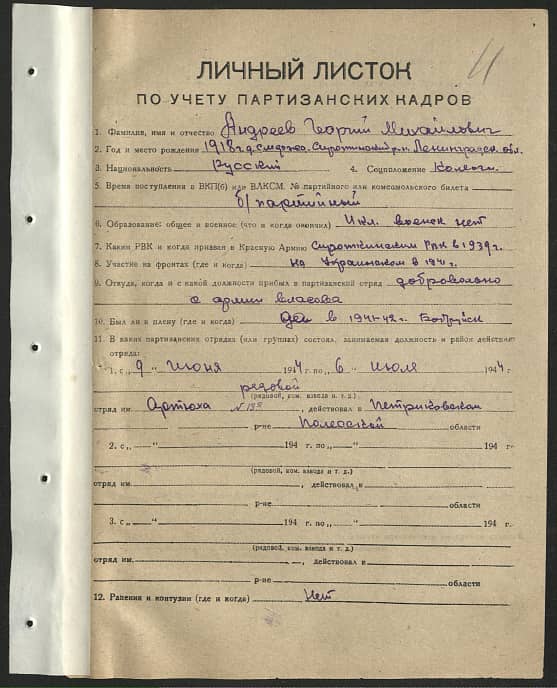 11
ЛИЧНЫЙ ЛИСТОК
ПО УЧЕТУ ПАРТИЗАНСКИХ КАДРОВ
1. Фамилия, имя и отчество Андреев Георгий Михайлович
2. Год и место рождения 1918 г. д. Сиротинский р-н. Ленинградск. обл.
3. Национальность Русский 4. Соцположение
5. Время поступления в ВКП(б) или ВЛКСМ. № партийного или комсомольского билета
б/партийный
6. Образование: общее и военное (что и когда окончил) 4 кл. военск нет
7. Каким РВК и когда призван в Красную Армию Сиротинским РВК в 1939 г.
8. Участие на фронтах (где и когда) на Украинском в 1941 г.
9. Откуда, когда и с какой должности прибыл в партизанский отряд добровольно
с армии власова
10. Был ли в плену (где и когда) Да в 1941-42 г. Бобруйск
11. В каких партизанских отрядах (или группах) состоял, занимаемая должность и район действия
отряда:
1. с „ 9 “ Июня 1944 г. по „ 6 “ Июля 1944 г.
рядовой
(рядовой, ком. взвода и т. д.)
отряд им. Артюха № 135, действовал в Петриковском
р-не Полесской области
2. с „ “ 194 г. по „ “ 194 г.
(рядовой, ком. взвода и т. д.)
отряд им. , действовал в
р-не области
3. с „ “ 194 г. по „ “ 194 г.
(рядовой, ком. взвода и т. д.)
отряд им. , действовал в
р-не области
12. Ранения и контузии (где и когда) Нет